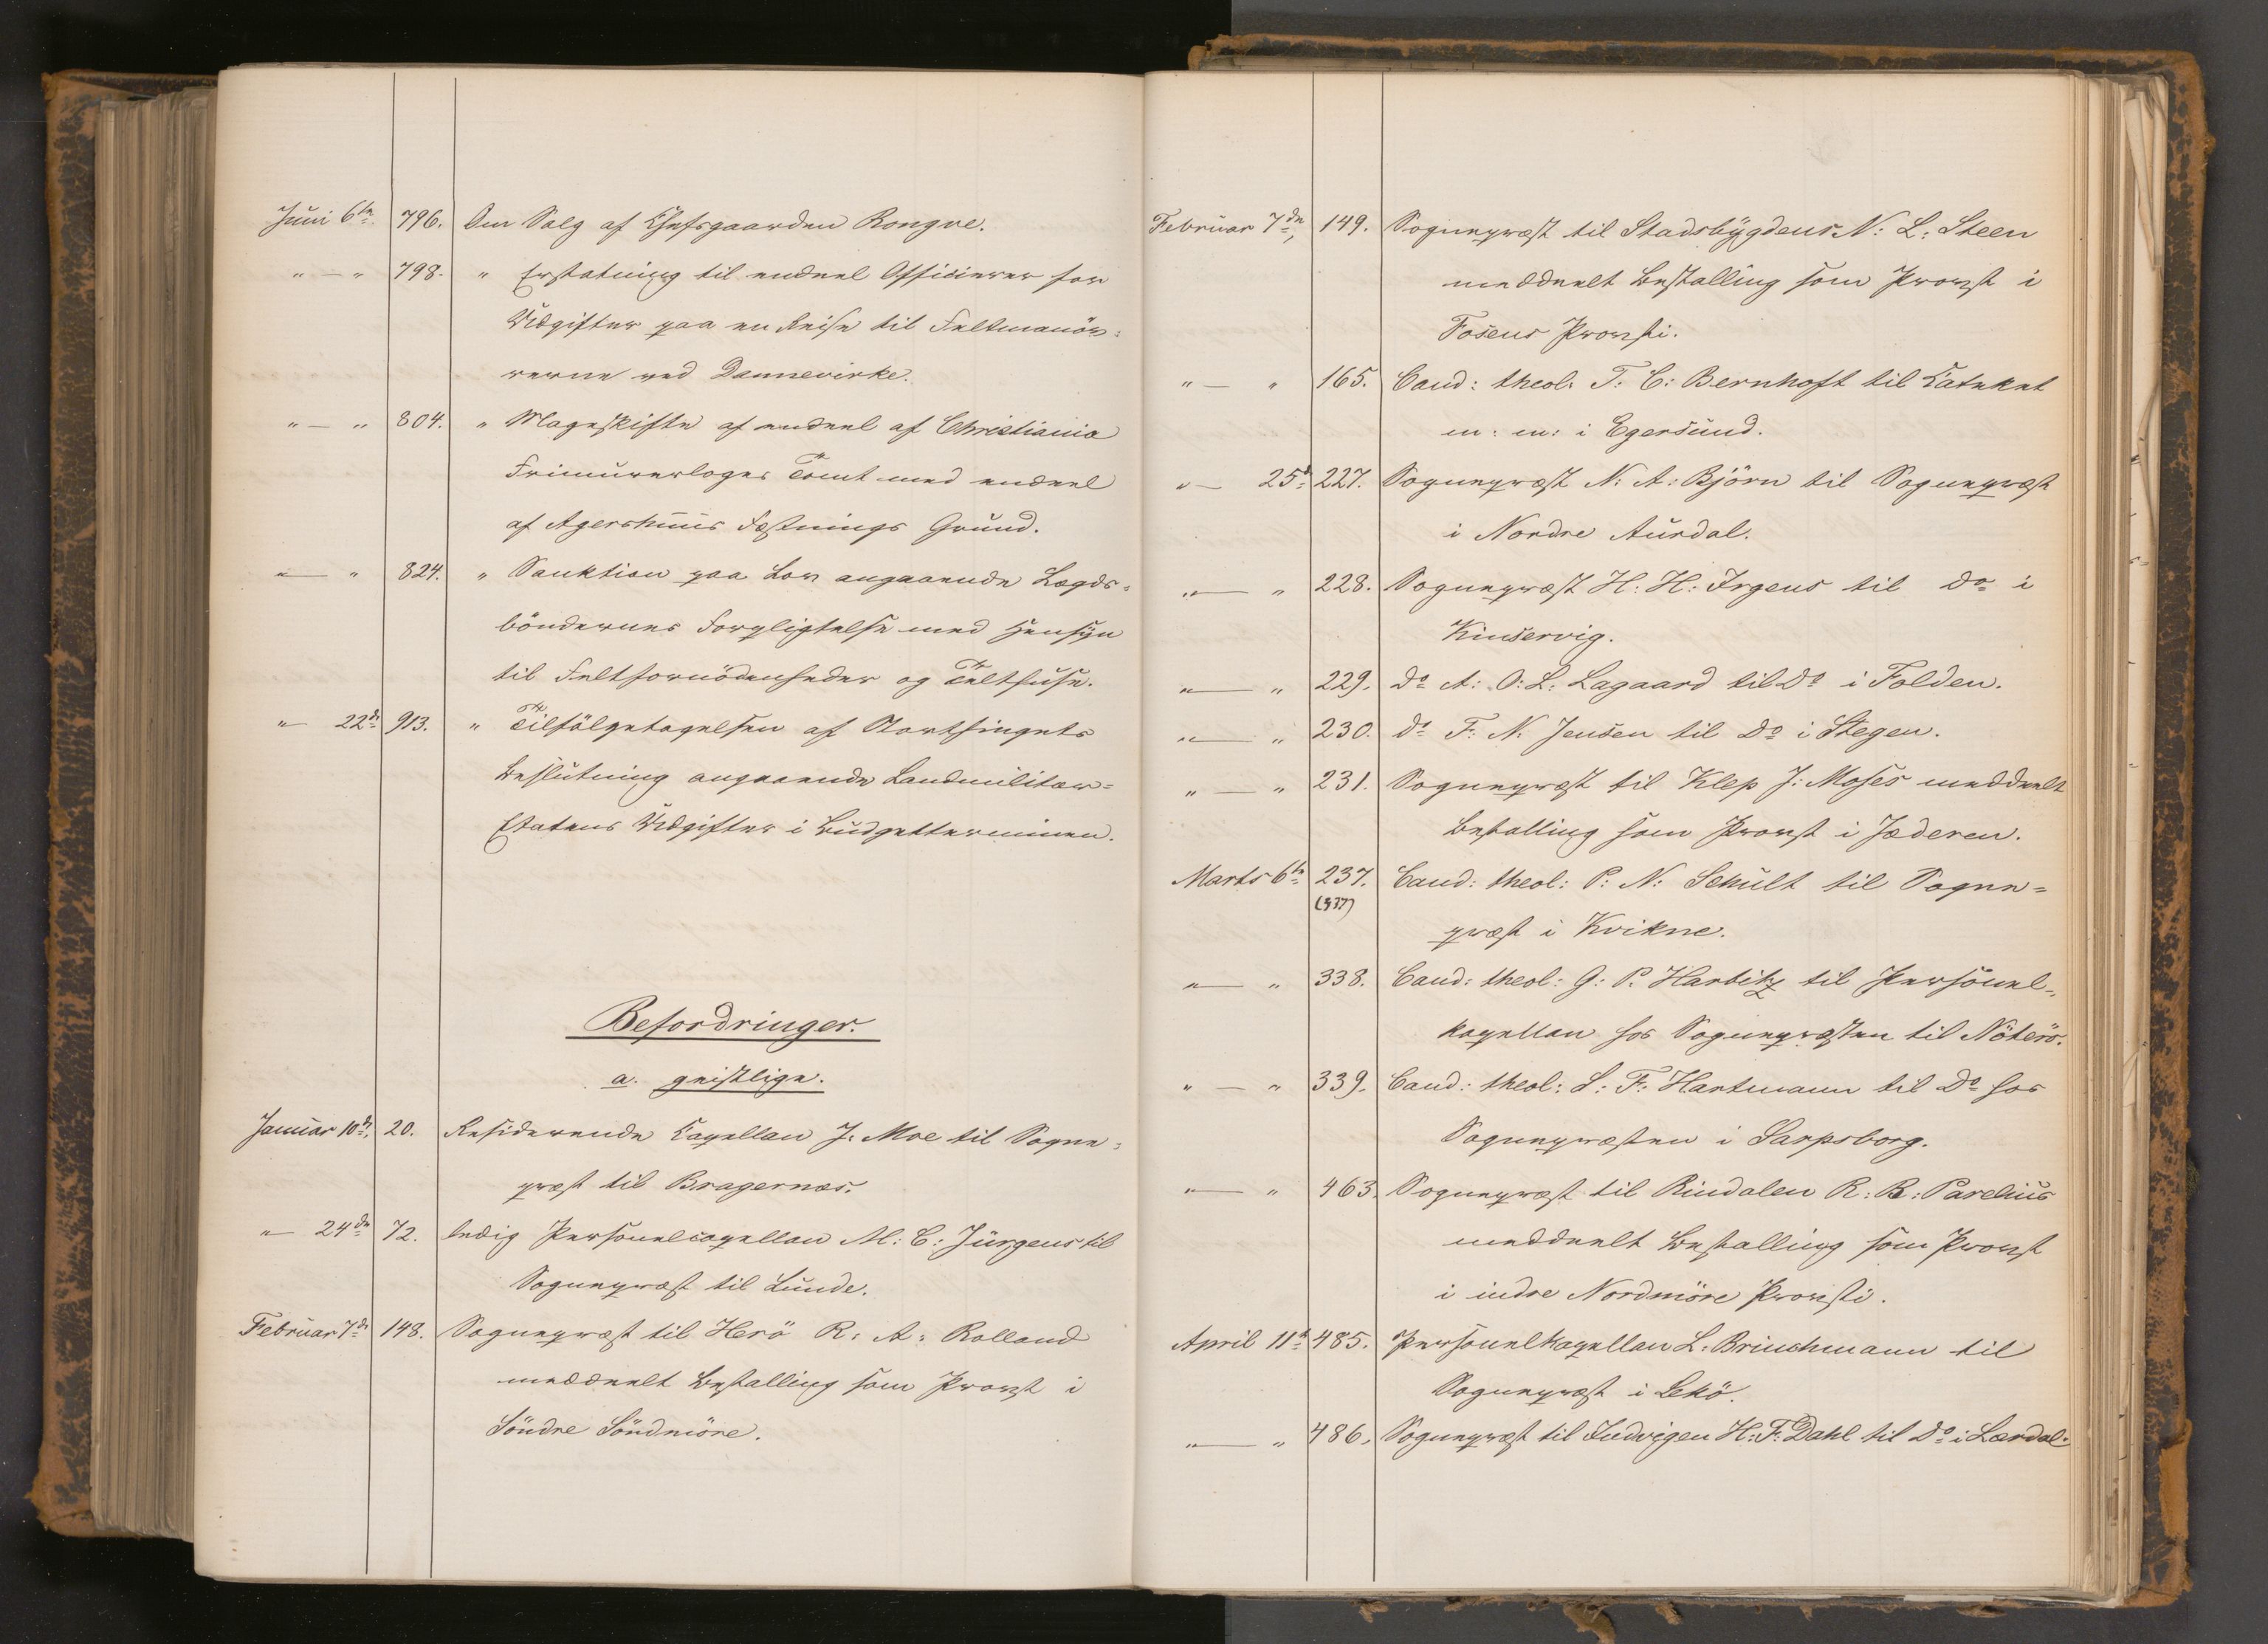 Juni 6te 796. Om Salg af Chefsgaarden Rongve.
" — " 798. " Erstatning til endeel Officierer for
Udgifter paa en Reise til Feltmanöv-
rerne ved Dannevirke.
" — " 804. " Mageskifte af endeel af Christiania
Frimurerloges Tomt med endeel
af Agershuus Fæstnings Grund.
" — " 824. " Sanktion paa Lov angaaende Lægds-
böndernes Forpligtelse med Hensyn
til Feltfornödenheder og Telthuse.
" 22de 913. " Tilfölgetagelsen af Storthingets
Beslutning angaaende Landmilitær-
Etatens Udgifter i Budgetterminen.
Befordringer.
a. geistlige.
Januar 10de, 20. Residerende Capellan J: Moe til Sogne-
præst til Bragernæs.
" 24de 72. ledig Personelcapellan M: C: Jürgens til
Sognepræst til Lunde.
Februar 7de 148. Sognepræst til Herö R: A: Rolland
meddeelt Bestalling som Provst i
Söndre Söndmöre.
Februar 7de, 149. Sognepræst til Stadsbygdens N: L: Steen
meddeelt Bestalling som Provst i
Fosens Provsti.
" — " 165. Cand: theol: T: C: Bernhoft til Catechet
m: m: i Egersund.
" — 25de 227. Sognepræst N: A: Björn til Sognepræst
i Nordre Aurdal.
" — " 228. Sognepræst H: H: Irgens til do i
Kinservig.
" — " 229. do A: O: L: Lagaard til Do i Folden.
" — " 230. do F: N. Jensen til Do i Stegen.
" — " 231. Sognepræst til Klep J: Moses meddeelt
Bestalling som Provst i Jæderen.
Marts 6te 237. Cand: theol: P: N: Schult til Sogne-
(337)
præst i Kvikne.
" — " 338. Cand: theol: G: P. Harbitz til Personel-
kapellan hos Sognepræsten til Nöterö.
" — " 339. Cand: theol: L: F: Hartmann til Do hos
Sognepræsten i Sarpsborg.
" — " 463. Sognepræst til Rindalen R: B: Parelius
meddeelt Bestalling som Provst
i indre Nordmöre Provsti.
April 11te 485. Personelkapellan L: Brinchmann til
Sognepræst i Lekö.
" — " 486. Sognepræst til Indvigen H: F: Dahl til Do i Lærdal.